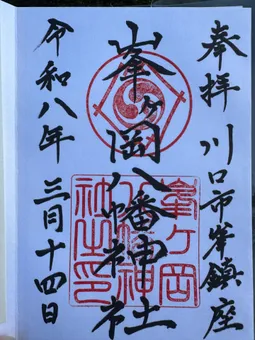 奉拝 川口市峯鎮座
峯ヶ岡八幡神社
峯ヶ岡
八幡神
社之印
令和八年 三月十四日